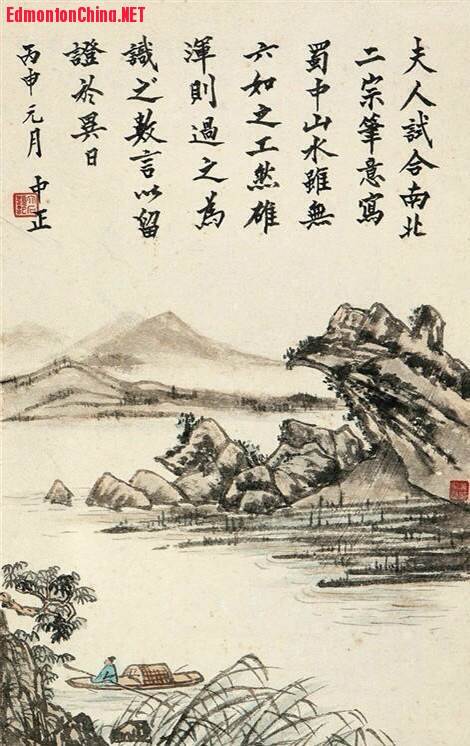 EdmontonChina.NET
夫人試合南北
二宗筆意寫
蜀中山水雖無
六如之工然雄
渾則過之為
識之數言以留
證於異日
丙申元月 中正